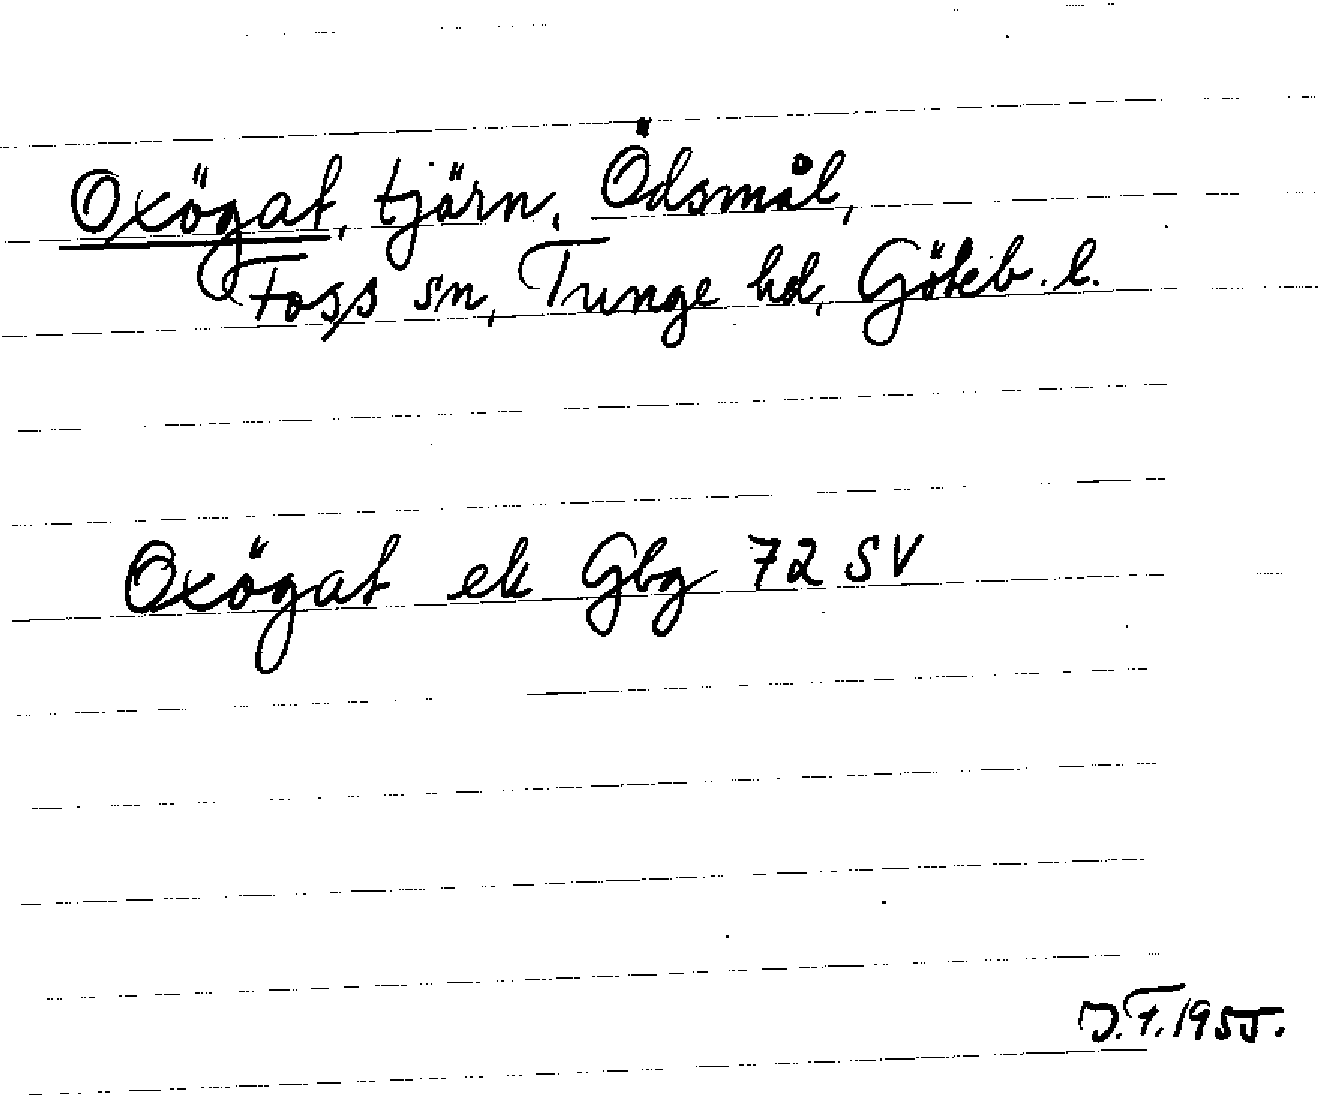 Oxögat, tjärn, Ödsmål,
Foss sn, Tunge hd, Göteb. l.
Oxögat ek Gbg 72 SV
J.F. 1955.